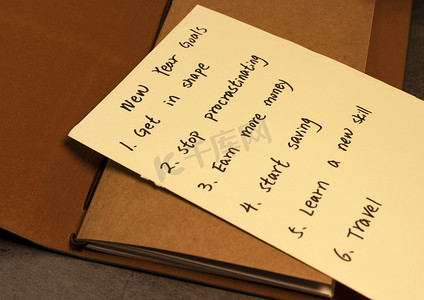 New Year Goals
1. Get in shape
2. Stop procrastinating
3. Earn more money
4. Start saving
5. Learn a new skill
6. Travel
千库网